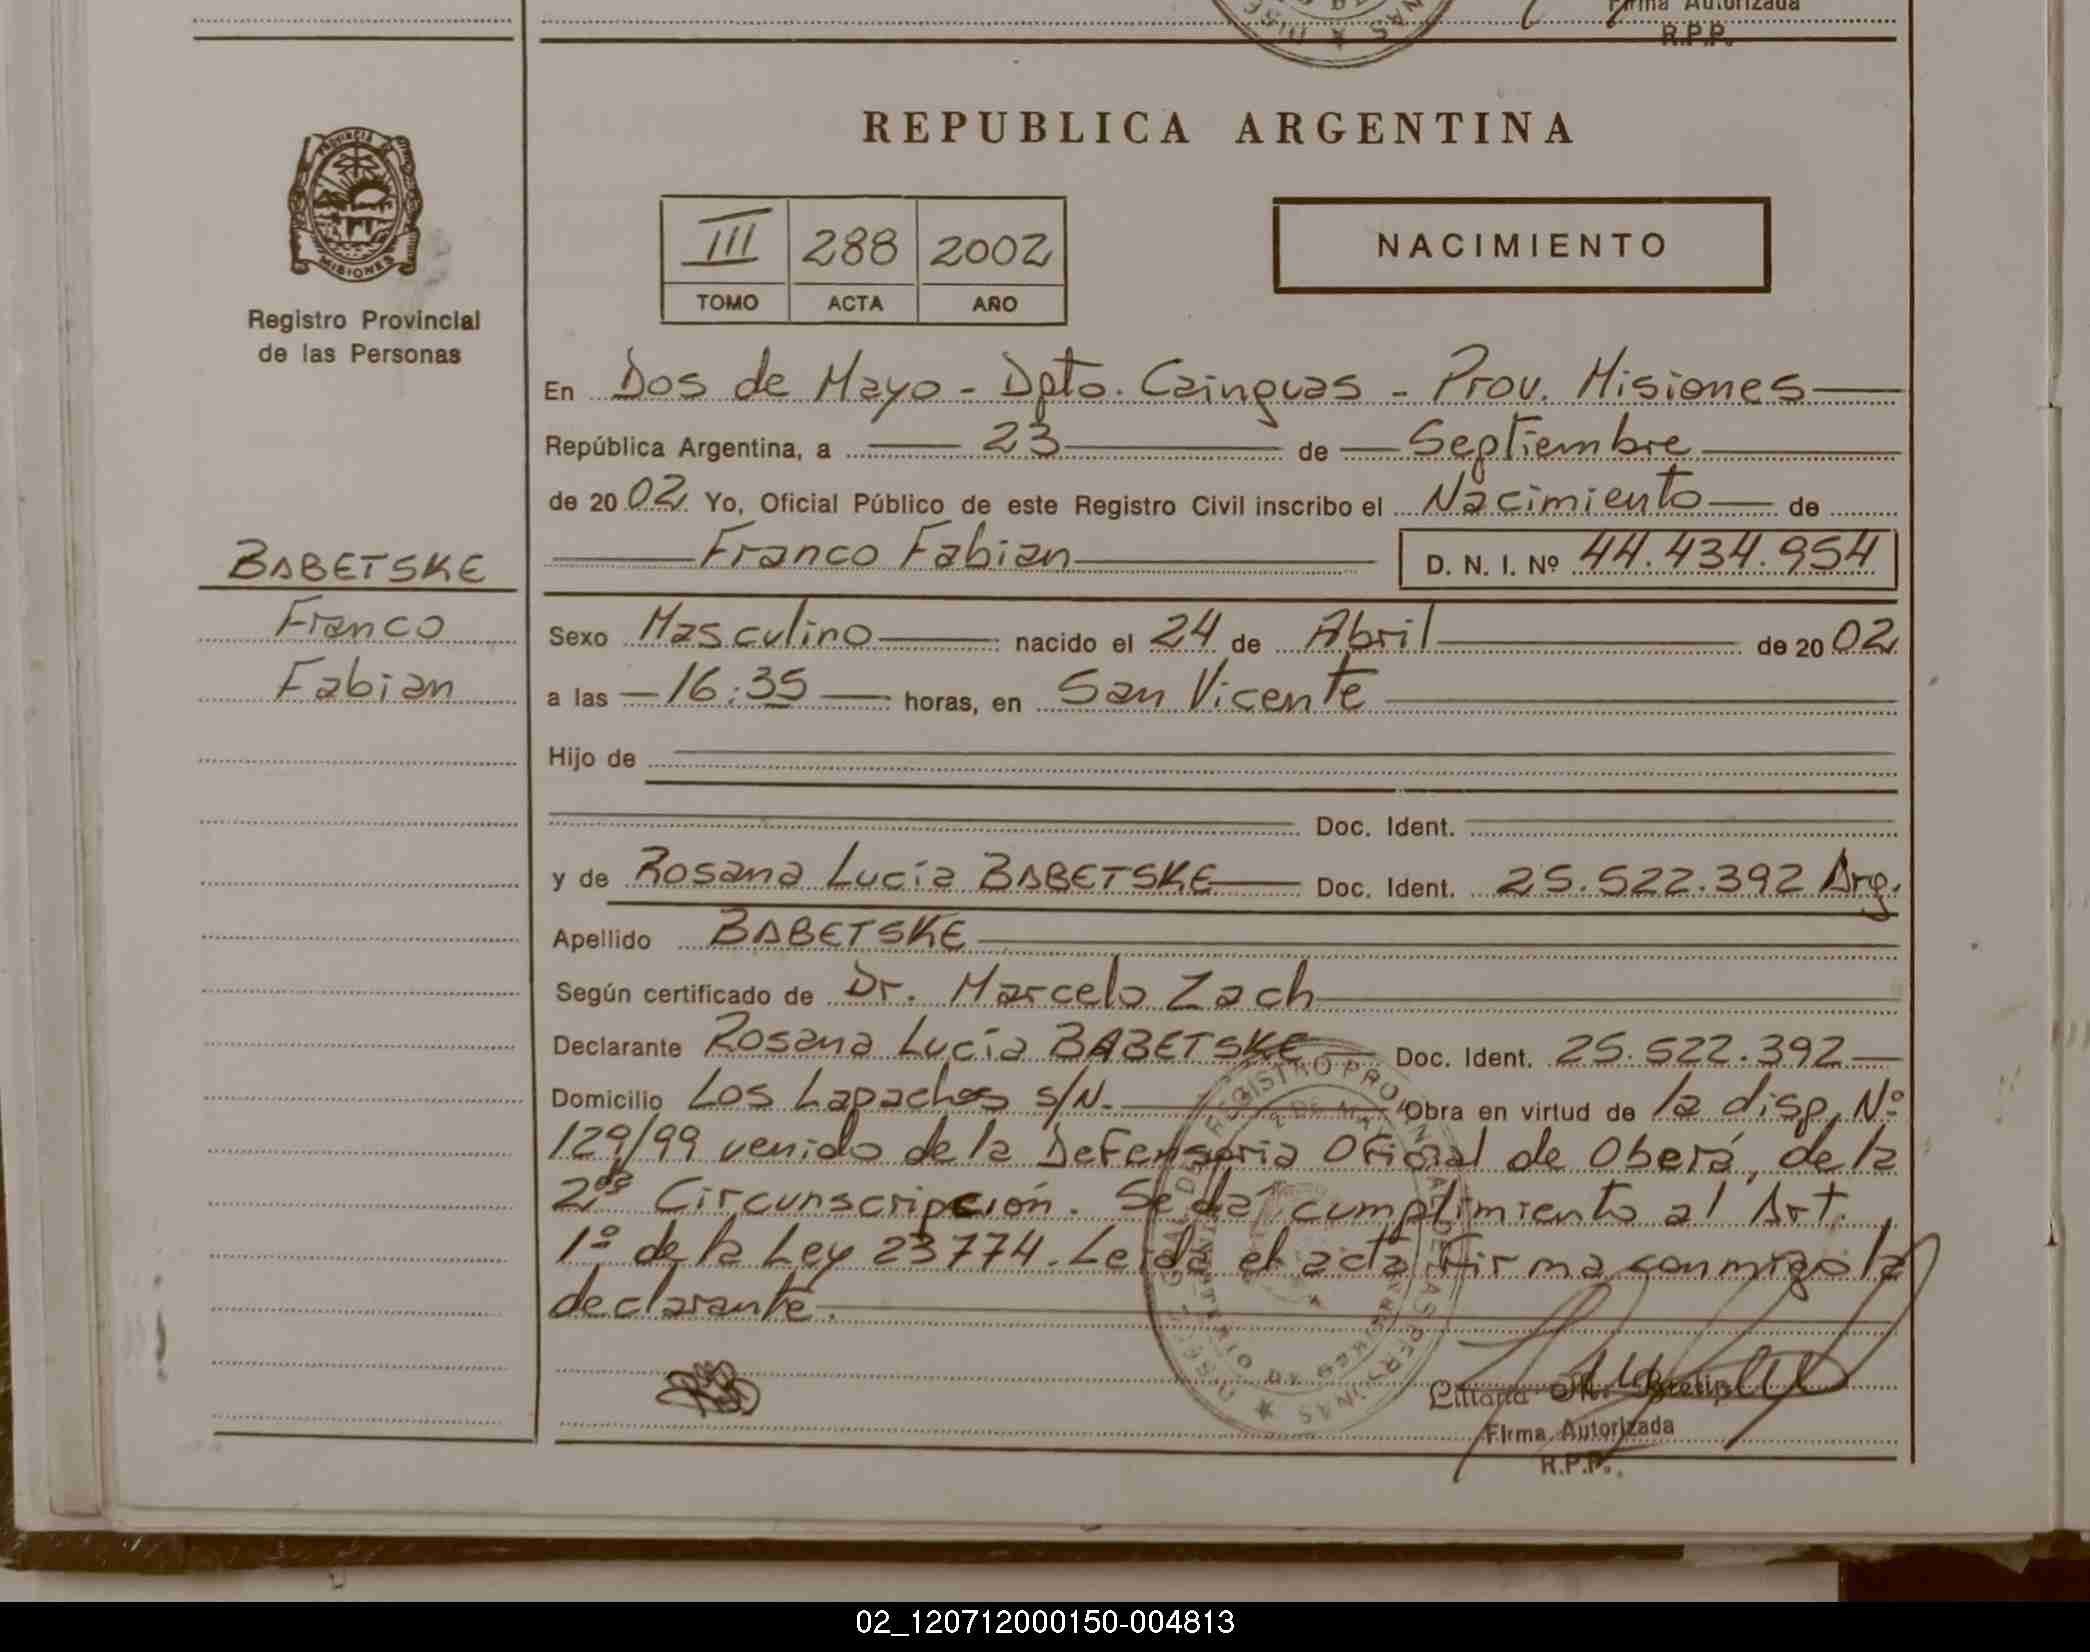 Firma Autorizada
R.P.P.
REPUBLICA ARGENTINA
PROVINCIA DE
MISIONES
Registro Provincial
de las Personas
III 288 2002
TOMO ACTA AÑO
NACIMIENTO
En Dos de Mayo - Dpto. Cainguas - Prov. Misiones
República Argentina, a 23 de Septiembre
de 2002 Yo, Oficial Público de este Registro Civil inscribo el Nacimiento de
Franco Fabian D. N. I. Nº 44.434.954
BABETSKE
Franco
Fabian
Sexo Masculino nacido el 24 de Abril de 2002
a las 16:35 horas, en San Vicente
Hijo de
Doc. Ident.
y de Rosana Lucía BABETSKE Doc. Ident. 25.522.392 Arg.
Apellido BABETSKE
Según certificado de Dr. Marcelo Zach
Declarante Rosana Lucía BABETSKE Doc. Ident. 25.522.392
Domicilio Los Lapachos s/N. Obra en virtud de la disp. Nº
129/99 venido de la Defensoria Oficial de Oberá, de la
2da Circunscripción. Se da cumplimiento al Art.
1º de la Ley 23774. Leida el acta firma conmigo la
declarante.
Firma Autorizada
R.P.P.
02_120712000150-004813